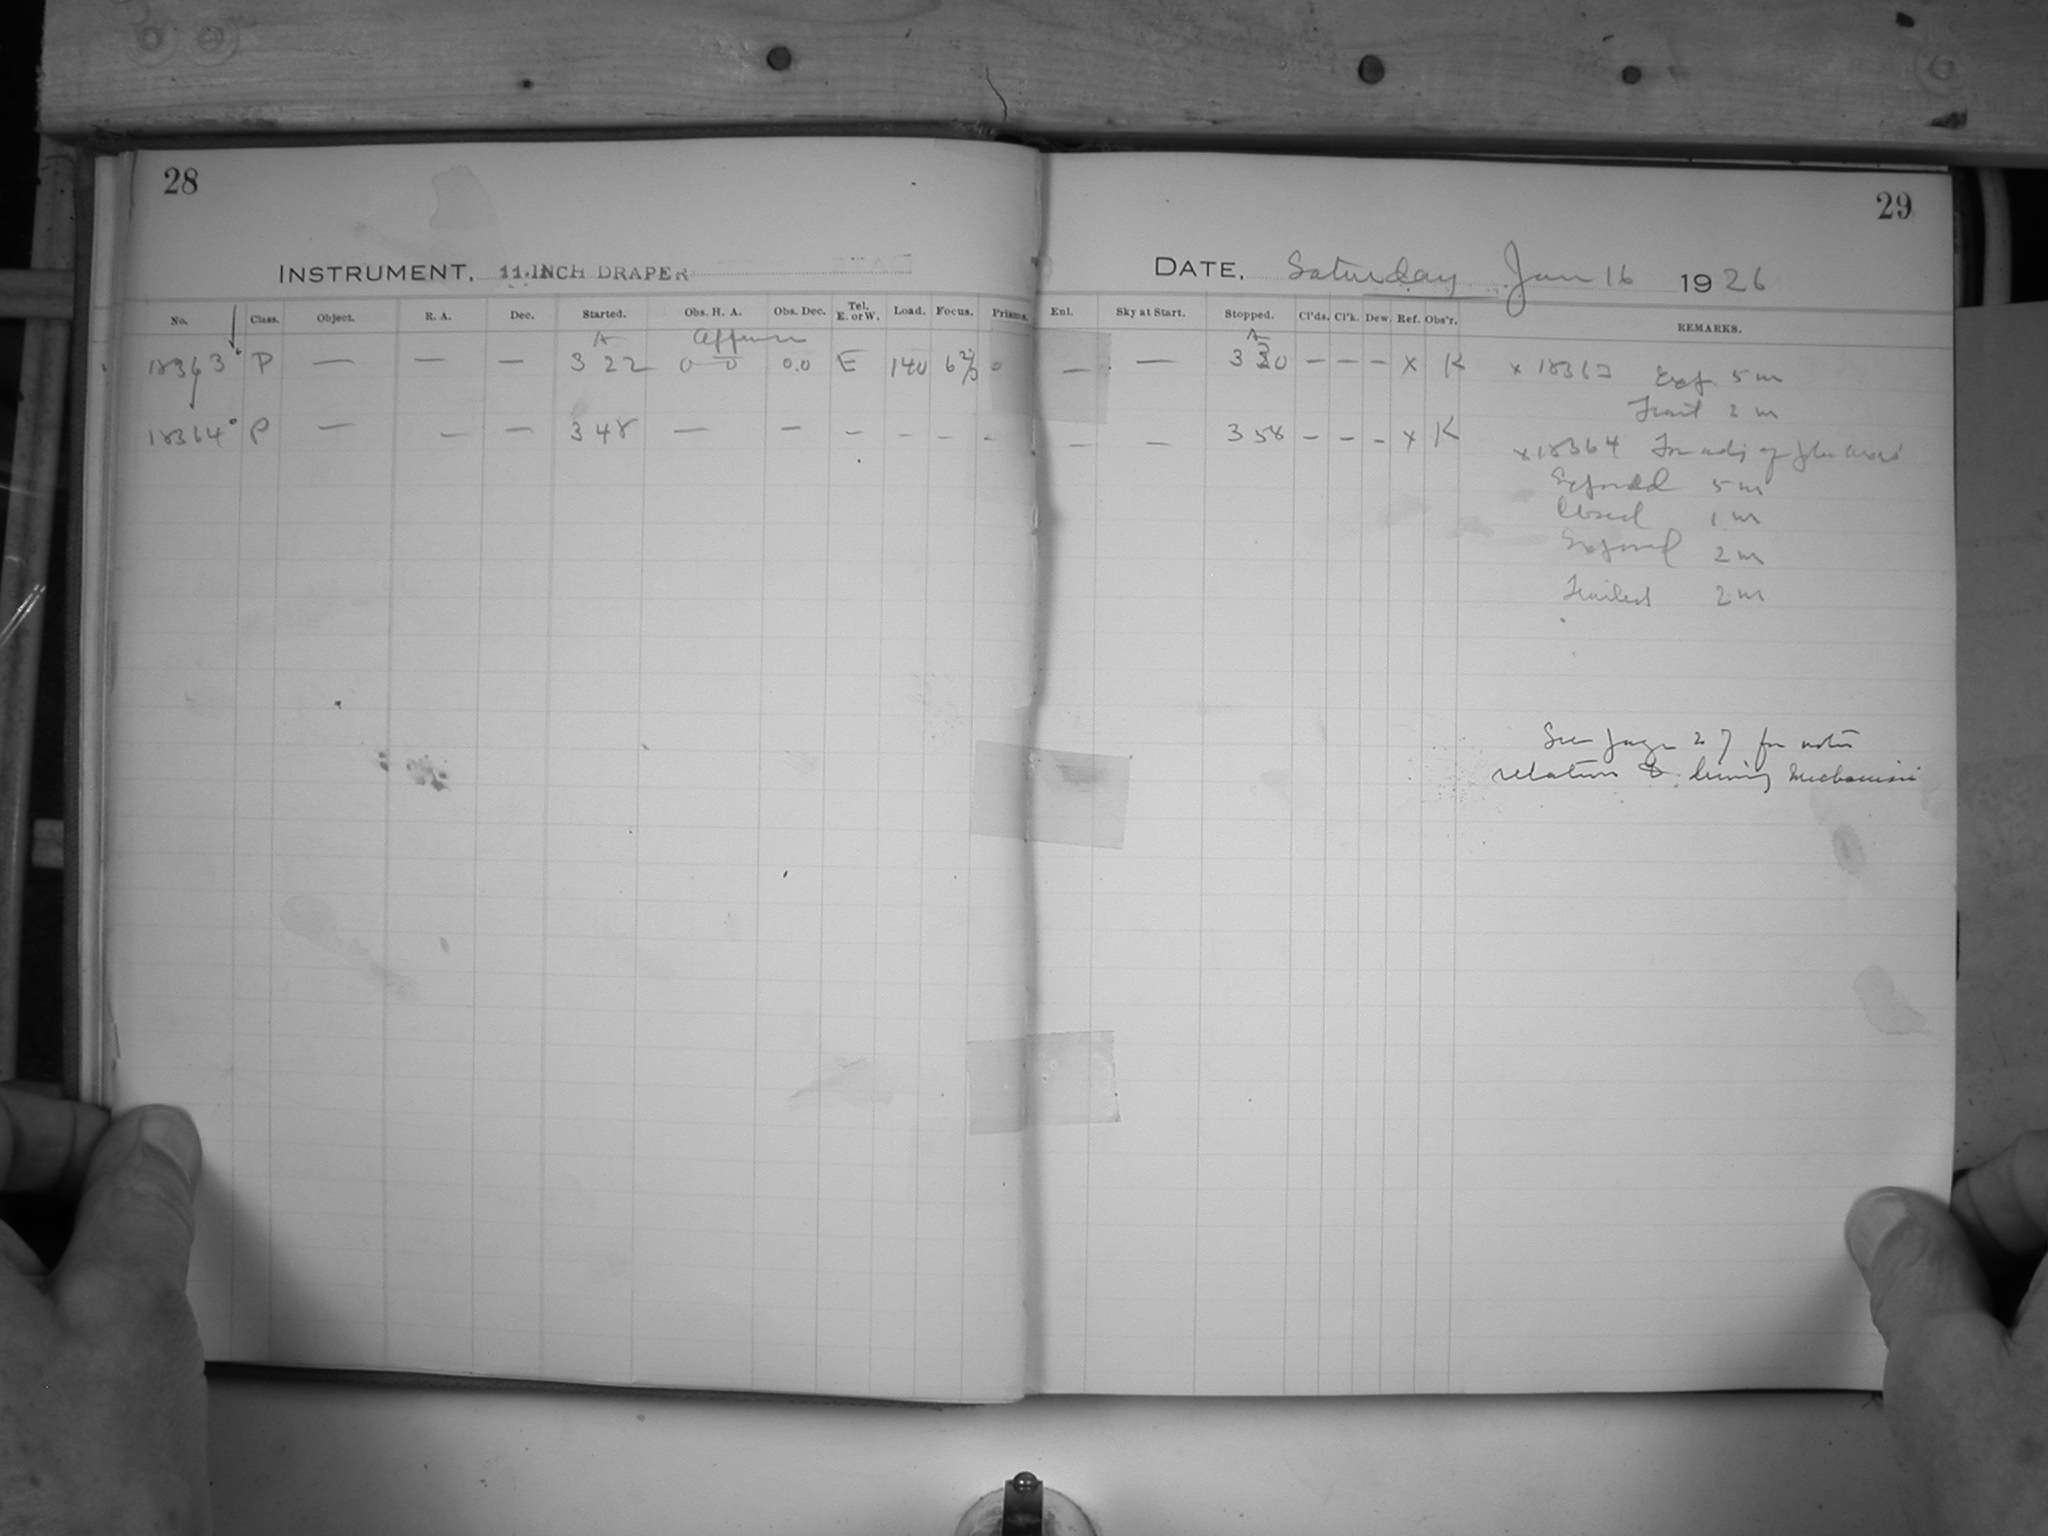 28
29
INSTRUMENT. 11-INCH DRAPER
DATE. Saturday Jan 16 1926
No. Class. Object. R. A. Dec. Started. Obs. H. A. Obs. Dec. Tel. E. or W. Load. Focus. Prisms. Enl. Sky at Start. Stopped. Cl'ds. Cl'k. Dew. Ref. Obs'r. REMARKS.
18363 P — — — 3 22 0 0 0.0 E 140 6 — — 3 30 — — — x K x 18363 Exp. 5 m
Trail 2 m
18364 P — — — 3 48 — — — — — - — — 3 58 — — — x K x 18364 For adj of
Exposed 5 m
Closed 1 m
Exposed 2 m
Trailed 2 m
See page 27 for notes
relation to driving mechanism